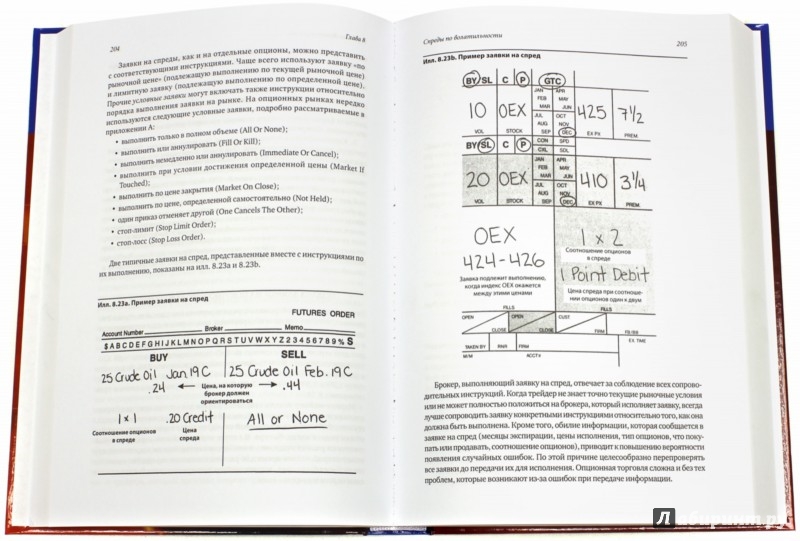 204
Глава 8
Заявки на спреды, как и на отдельные опционы, можно представить
с соответствующими инструкциями. Чаще всего используют заявку «по
рыночной цене» (подлежащую выполнению по текущей рыночной цене)
и лимитную заявку (подлежащую выполнению по определенной цене).
Прочие условные заявки могут включать также инструкции относительно
порядка выполнения заявки на рынке. На опционных рынках нередко
используются следующие условные заявки, подробно рассматриваемые в
приложении А:
• выполнить только в полном объеме (All Or None);
• выполнить или аннулировать (Fill Or Kill);
• выполнить немедленно или аннулировать (Immediate Or Cancel);
• выполнить при условии достижения определенной цены (Market If
Touched);
• выполнить по цене закрытия (Market On Close);
• выполнить по цене, определенной самостоятельно (Not Held);
• один приказ отменяет другой (One Cancels The Other);
• стоп-лимит (Stop Limit Order);
• стоп-лосс (Stop Loss Order).
Две типичные заявки на спред, представленные вместе с инструкциями по
их выполнению, показаны на илл. 8.23a и 8.23b.
Илл. 8.23a. Пример заявки на спред
FUTURES ORDER
Account Number Broker Memo
$ A B C D E F G H I J K L M N O P Q R S T U V W X Y Z 1 2 3 4 5 6 7 8 9 % $
BUY SELL
25 Crude Oil Jan 19 C 25 Crude Oil Feb. 19 C
.24 ← Цена, на которую → .44
брокер должен
ориентироваться
1 x 1 .20 Credit All or None
Соотношение опционов Цена
в спреде спреда
Спреды по волатильности
205
Илл. 8.23b. Пример заявки на спред
BY/SL C P GTC
JAN APR
FEB MAY
MAR JUN
JUL OCT
AUG NOV
SEP DEC
10 OEX 425 7 1/2
VOL STOCK EX PX PREM.
CON SPD
CXL SDL
BY/SL C P
JAN APR
FEB MAY
MAR JUN
JUL OCT
AUG NOV
SEP DEC
20 OEX 410 3 1/4
VOL STOCK EX PX PREM.
OEX
424-426
Заявка подлежит выполнению,
когда индекс OEX окажется
между этими ценами
1 x 2
Соотношение опционов
в спреде
1 Point Debit
Цена спреда при соотноше-
нии опционов один к двум
FILLS FILLS
OPEN OPEN CUST
CLOSE CLOSE FIRM
EX TIME
TAKEN BY BKR FIRM
M/M ACCT#
Брокер, выполняющий заявку на спред, отвечает за соблюдение всех сопрово-
дительных инструкций. Когда трейдер не знает точно текущие рыночные условия
или не может полностью положиться на брокера, который исполняет заявку, всегда
лучше сопроводить заявку конкретными инструкциями относительно того, как она
должна быть выполнена. Кроме того, обилие информации, которая сообщается в
заявке на спред (месяцы экспирации, цены исполнения, тип опционов, что поку-
пать или продавать, соотношение опционов), приводит к повышению вероятности
появления случайных ошибок. По этой причине целесообразно перепроверять
все заявки до передачи их для исполнения. Опционная торговля сложна и без тех
проблем, которые возникают из-за ошибок при передаче информации.
Лабиринт.ру